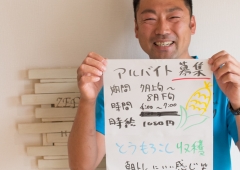 アルバイト 募集
期間 7月上旬～
8月下旬
時間 4:00～9:00
時給 1000円
とうもろこし収穫